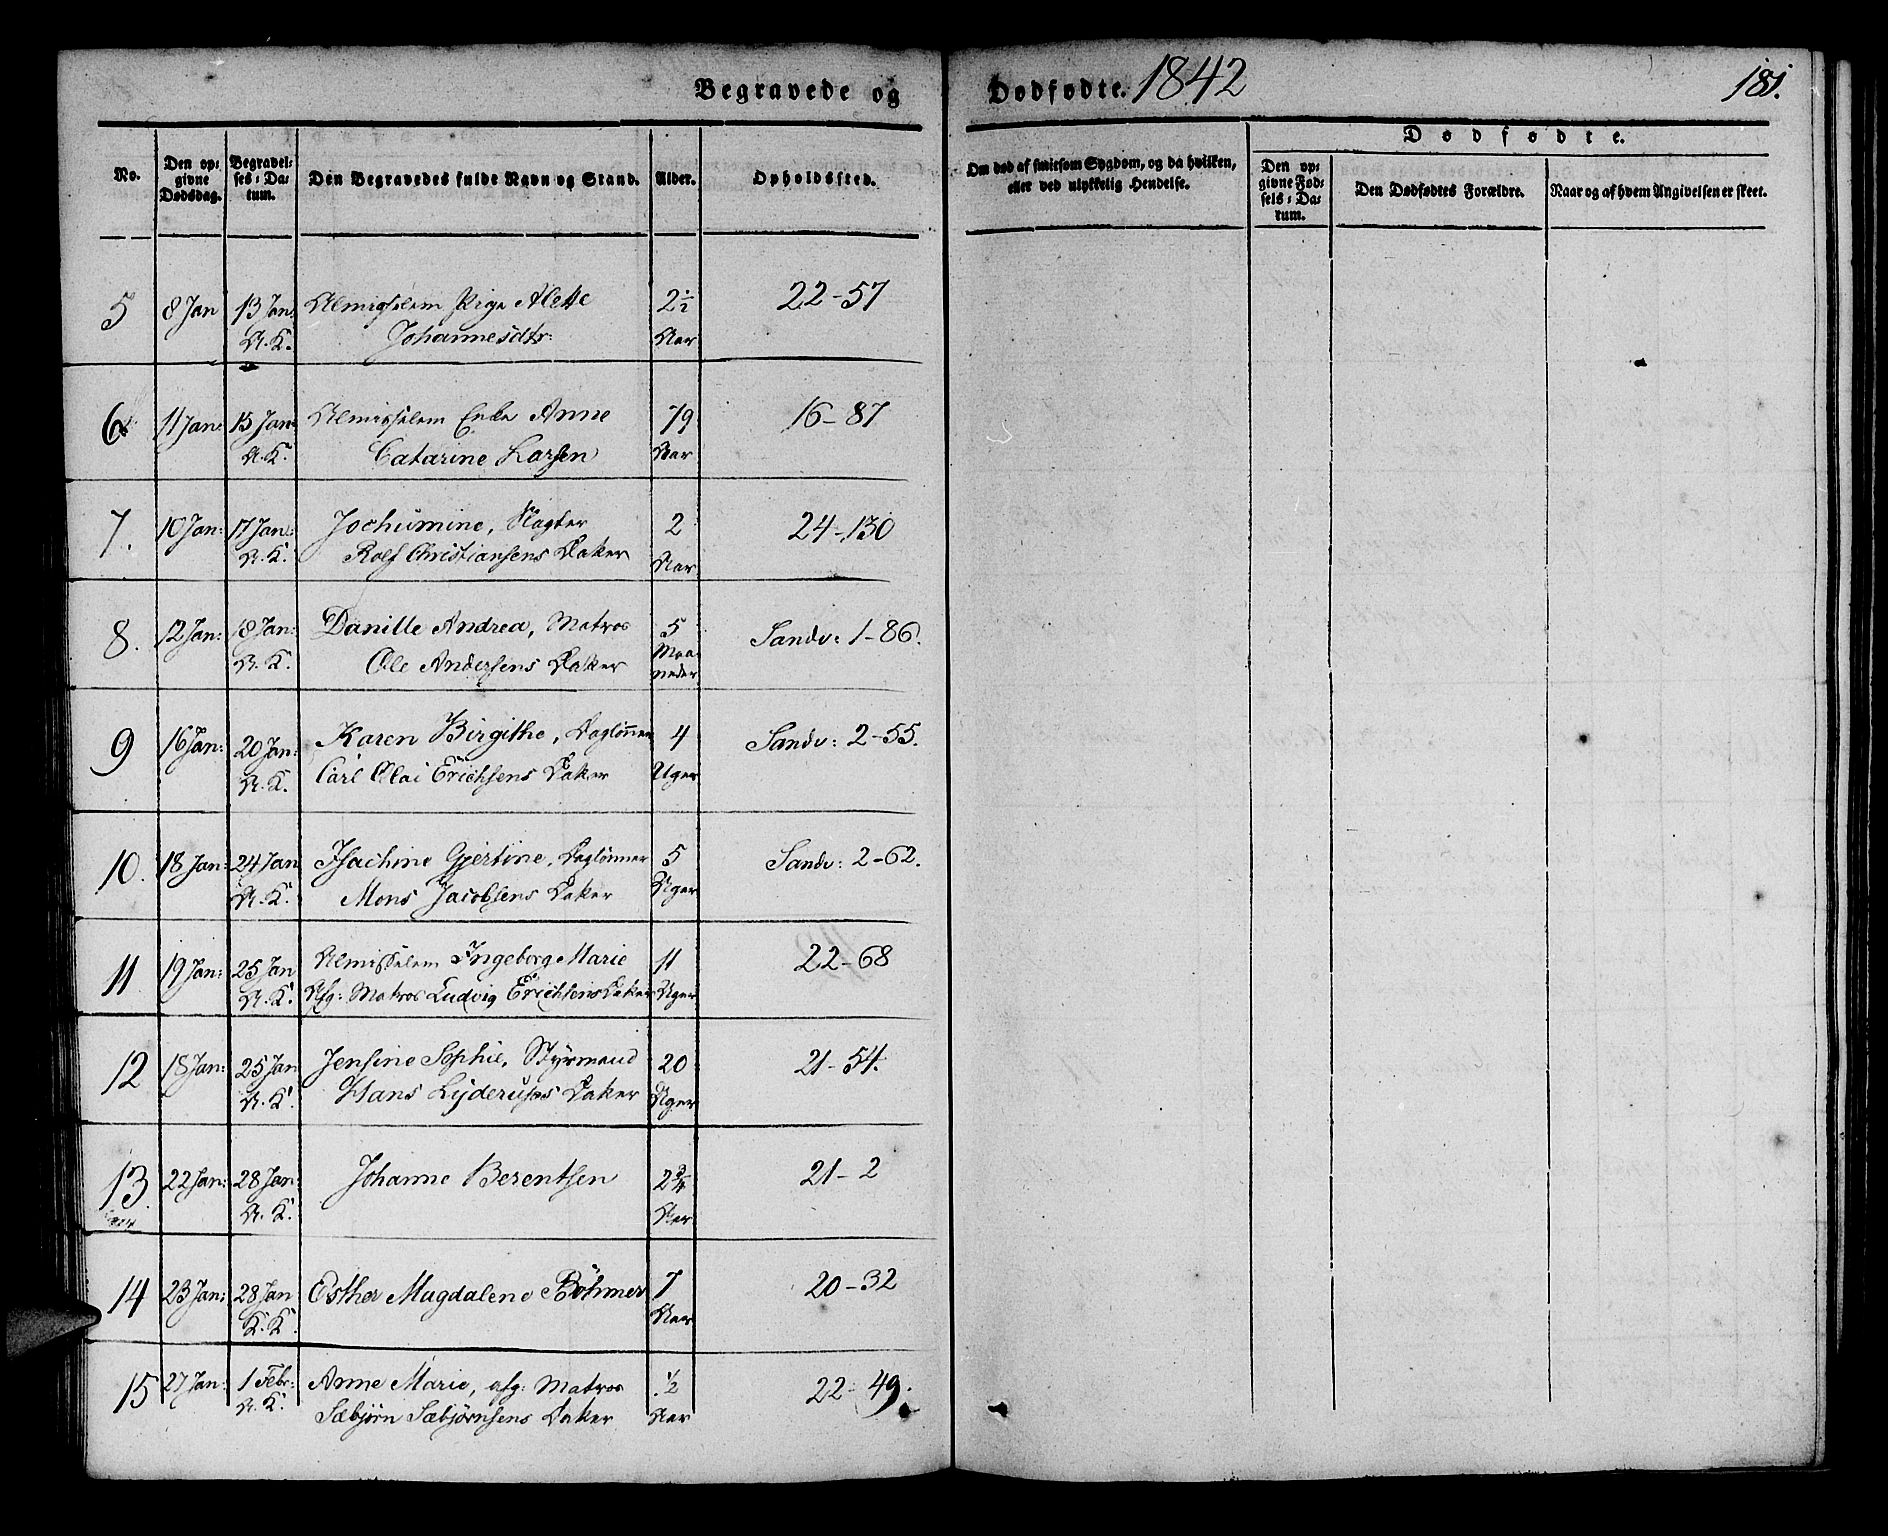 Begravede og Dødfødte. 1842 181.
No. Den opgivne Dødsdag. Begravelses-Datum. Den Begravedes fulde Navn og Stand. Alder. Opholdssted. Om død af smitsom Sygdom, og da hvilken, eller ved ulykkelig Hendelse. Dødfødte. Den opgivne Fødsels-Datum. Den Dødfødtes Forældre. Naar og af hvem Angivelsen er skeet.
5 8 Jan 13 Jan: Almisselem Pige Alette 2½ 22-57
N. K. Johannesdtr: Aar
6 11 Jan: 15 Jan: Almisselem Enke Anne 79 16-87
N. K. Catarine Larsen Aar
7. 10 Jan: 17 Jan: Jochumine, Vægter 2 24-130
N. K. Rolf Christiansens Datter Aar
8. 12 Jan: 18 Jan: Danille Andrea, Matros 5 Sandv: 1-86.
N. K. Ole Andersens Datter Maaneder
9 16 Jan: 20 Jan: Karen Birgithe, Daglønner 4 Sandv: 2-55.
N. K. Carl Olai Erichsens Datter Uger
10. 18 Jan: 24 Jan Isachine Gjertine, Daglønner 5 Sandv: 2-62.
N. K. Mons Jacobsens Datter Uger
11 19 Jan: 25 Jan Almisselem Ingeborg Marie 11 22-68
N. K. Afg: Matros Ludvig Erichsens Datter Uger
12 18 Jan: 25 Jan Jensine Sophie, Styrmand 20 21-54.
N. K. Hans Datter Uger
13. 22 Jan: 28 Jan: Johanne Berentsen 2¾ 21-2
N. K. Aar
14 23 Jan: 28 Jan Esther Magdalene Böhmer 7 20-32
K. K. Aar
15 27 Jan: 1 Febr: Anne Marie, afg: Matros ½ 22-49.
N. K. Sæbjørn Sæbjørnsens Datter Aar